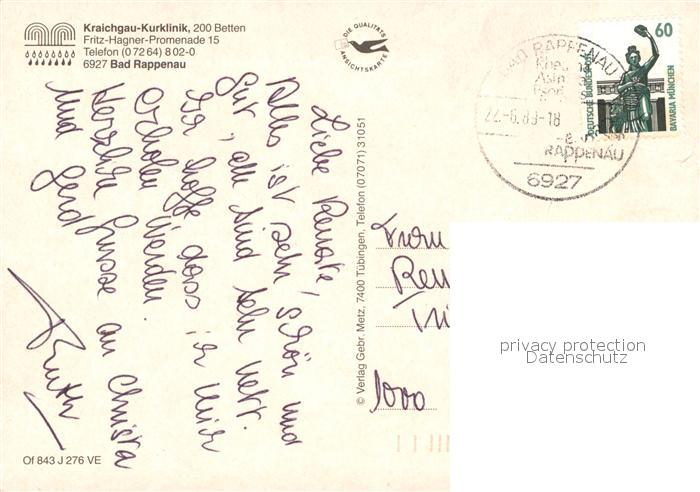 Kraichgau-Kurklinik, 200 Betten
Fritz-Hagner-Promenade 15
Telefon (0 72 64) 8 02-0
6927 Bad Rappenau
DIE QUALITÄTS
ANSICHTSKARTE
60
DEUTSCHE BUNDESPOST
BAVARIA MÜNCHEN
BAD RAPPENAU
-18
RAPPENAU
6927
Liebe Renate,
Alles ist sehr schön und
Gut, alle sind sehr nett.
Ihr hoffe dass ich mich
Erholen werden.
Herzliche Grüsse an Christa
Und Gerd
Ruth
© Verlag Gebr. Metz, 7400 Tübingen, Telefon (07071) 31051
1000
privacy protection
Datenschutz
Of 843 J 276 VE